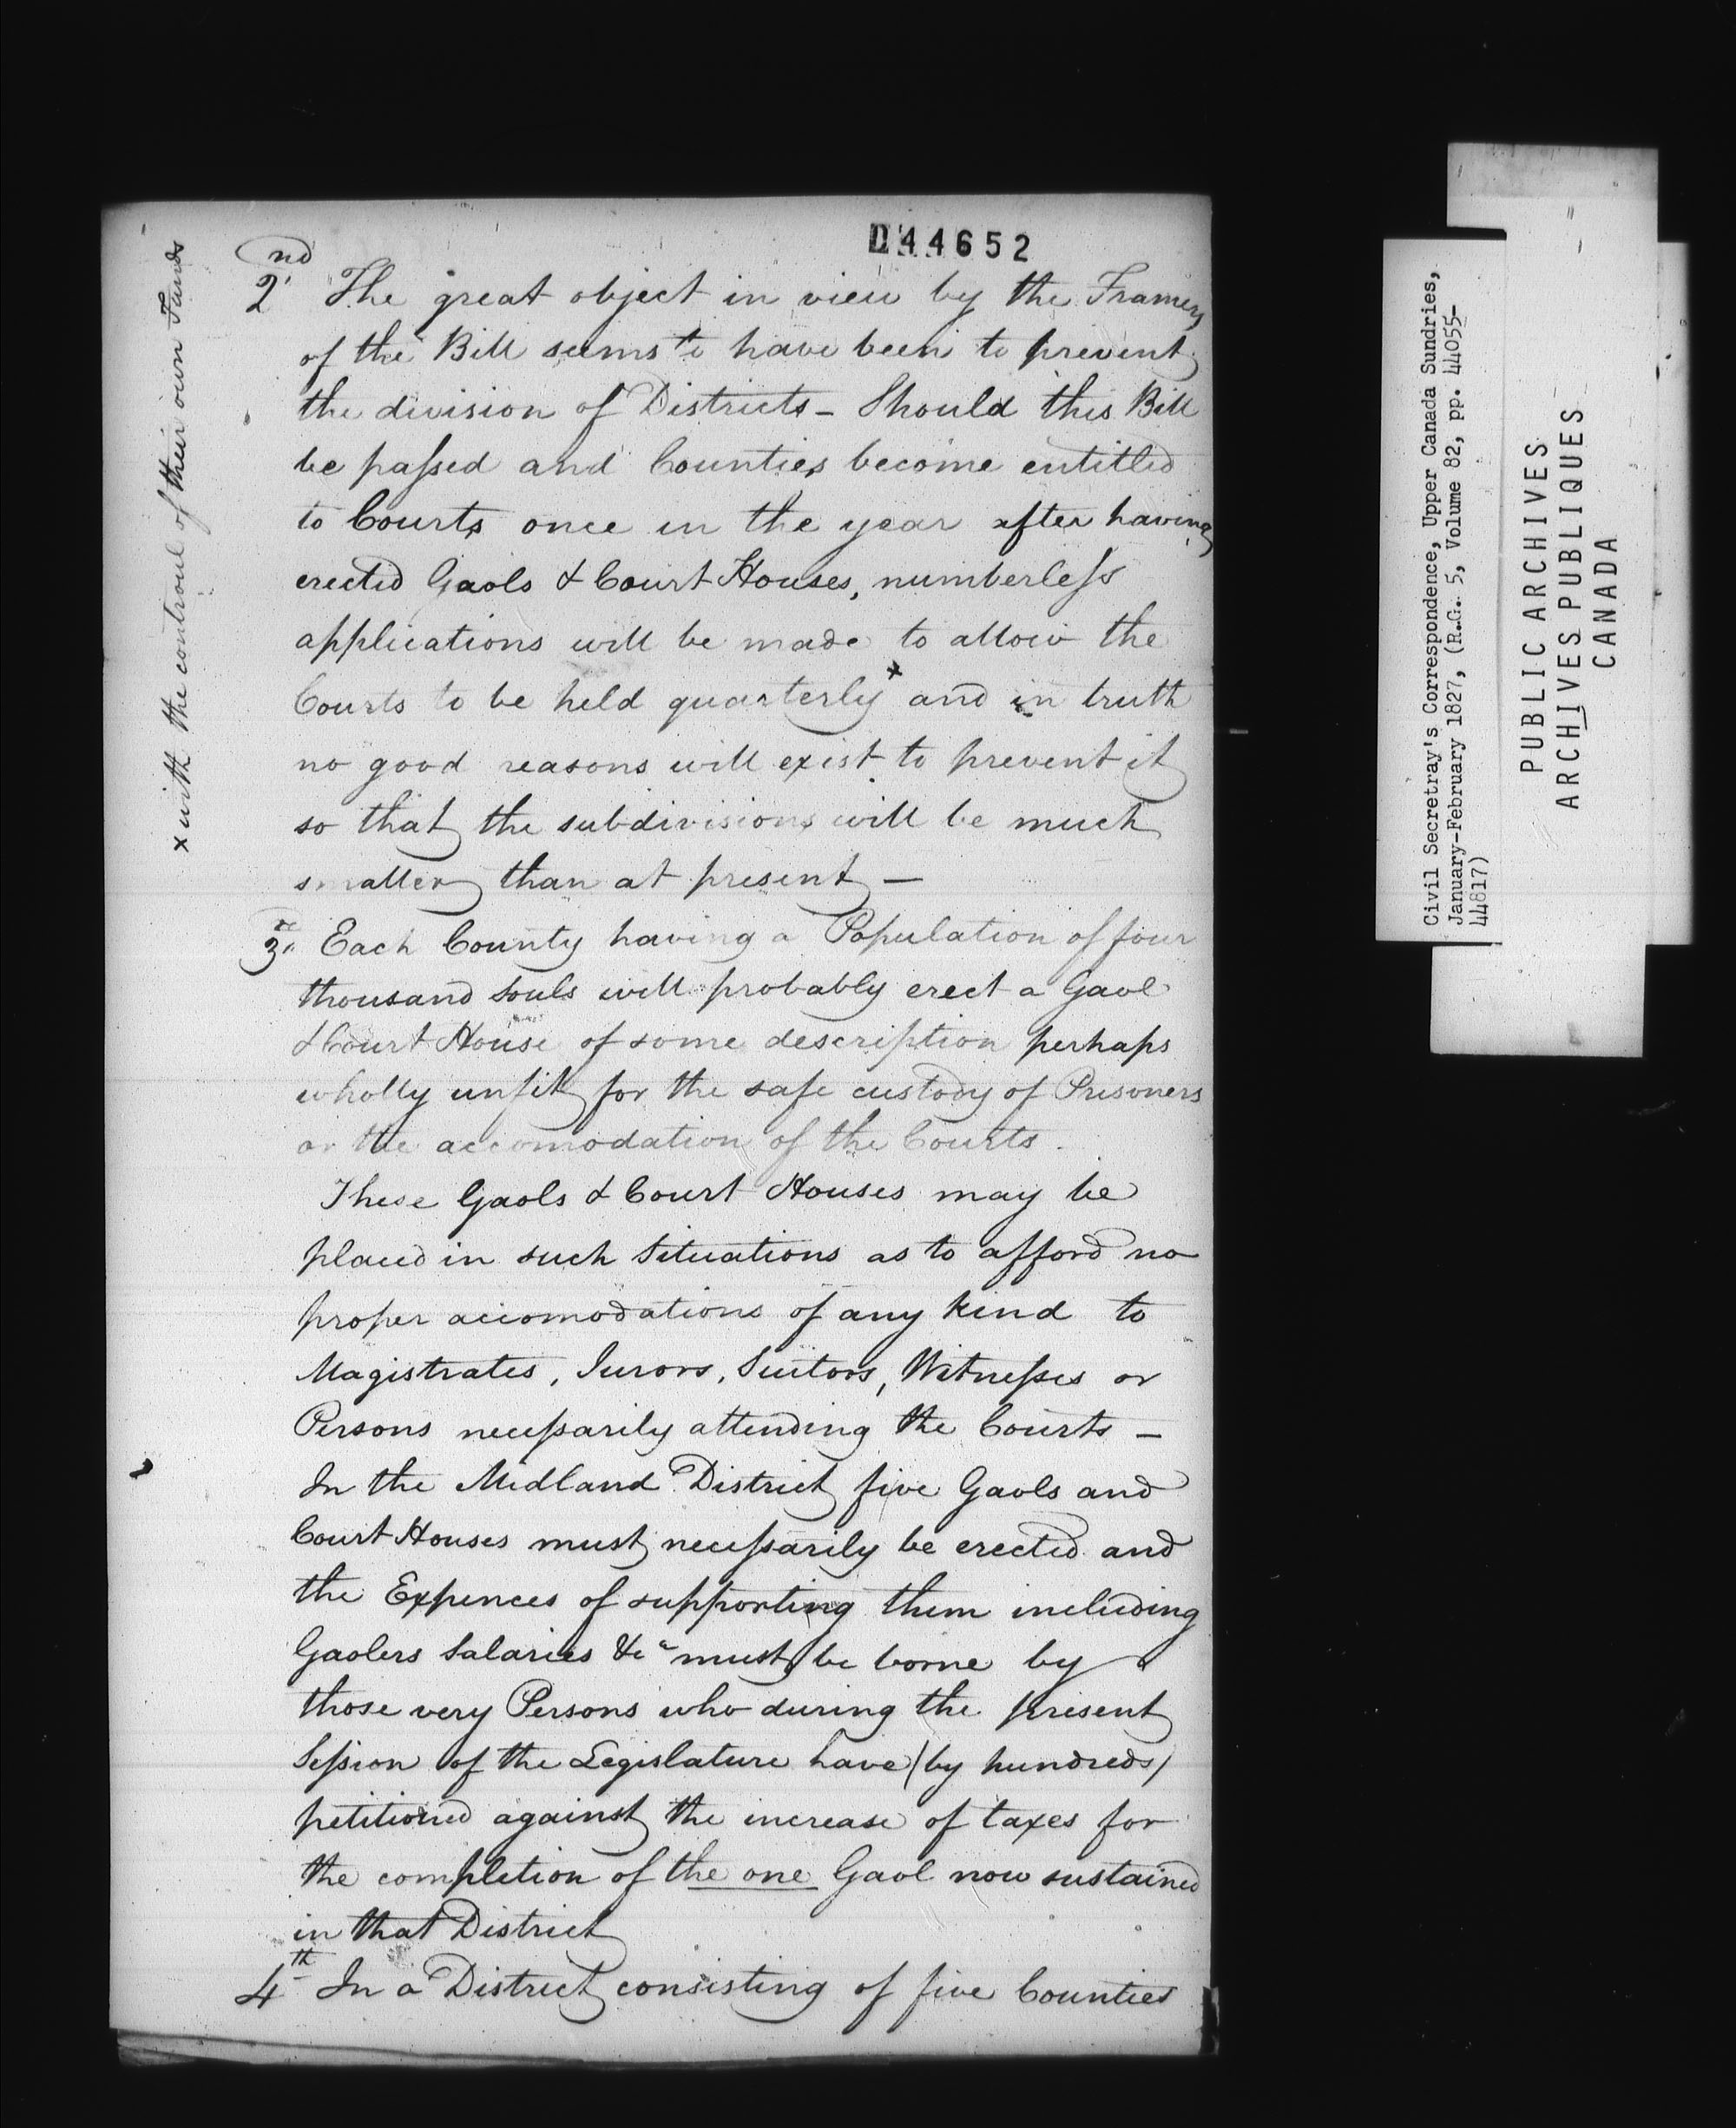 D44652
2nd The great object in view by the Framers
of the Bill seems to have been to prevent
the division of Districts – Should this Bill
be passed and Counties become entitled
to Courts once in the year after having
erected Gaols & Court Houses, numberless
applications will be made to allow the
Courts to be held quarterly x and in truth
no good reasons will exist to prevent it
so that the subdivisions will be much
smaller than at present —
x with the controul of their own Funds
3rd Each County having a Population of four
thousand souls will probably erect a Gaol
& Court House of some description perhaps
wholly unfit for the safe custody of Prisoners
or the accomodation of the Courts.
These Gaols & Court Houses may be
placed in such situations as to afford no
proper accomodations of any kind to
Magistrates, Jurors, Suitors, Witnesses or
Persons necessarily attending the Courts –
In the Midland District five Gaols and
Court Houses must necessarily be erected and
the Expences of supporting them including
Gaolers Salaries &c must be borne by
those very Persons who during the present
Session of the Legislature have (by hundreds)
petitioned against the increase of taxes for
the completion of the one Gaol now sustained
in that District
4th In a District consisting of five Counties
Civil Secretray's Correspondence, Upper Canada Sundries,
January-February 1827, (R.G. 5, Volume 82, pp. 44055-
44817)
PUBLIC ARCHIVES
ARCHIVES PUBLIQUES
CANADA